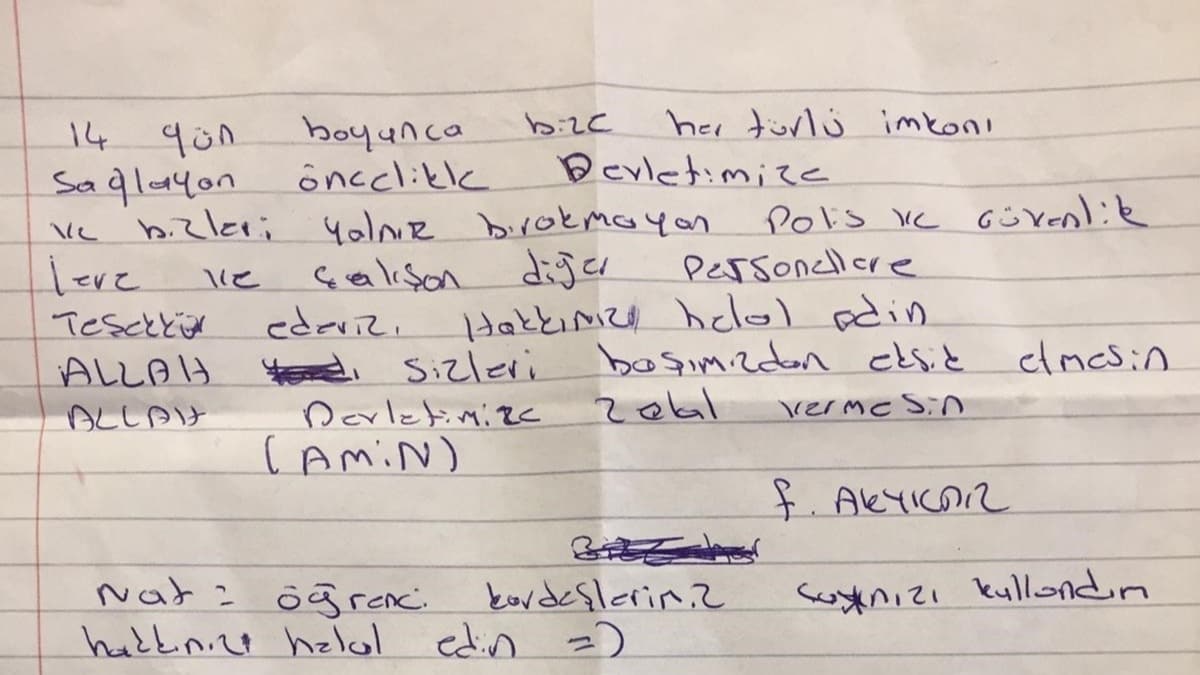 14 gün boyunca bize her türlü imkanı
Sağlayan öncelikle Devletimize
ve bizleri yalnız bırakmayan Polis ve Güvenlik
lere ve çalışan diğer Personellere
Teşekkür ederiz. Hakkınızı helal edin
ALLAH sizleri başımızdan eksik etmesin
ALLAH Devletimize zeval vermesin
(AMİN)
f.
Not = öğrenci kardeşleriniz kullandım
hakkınızı helal edin =)